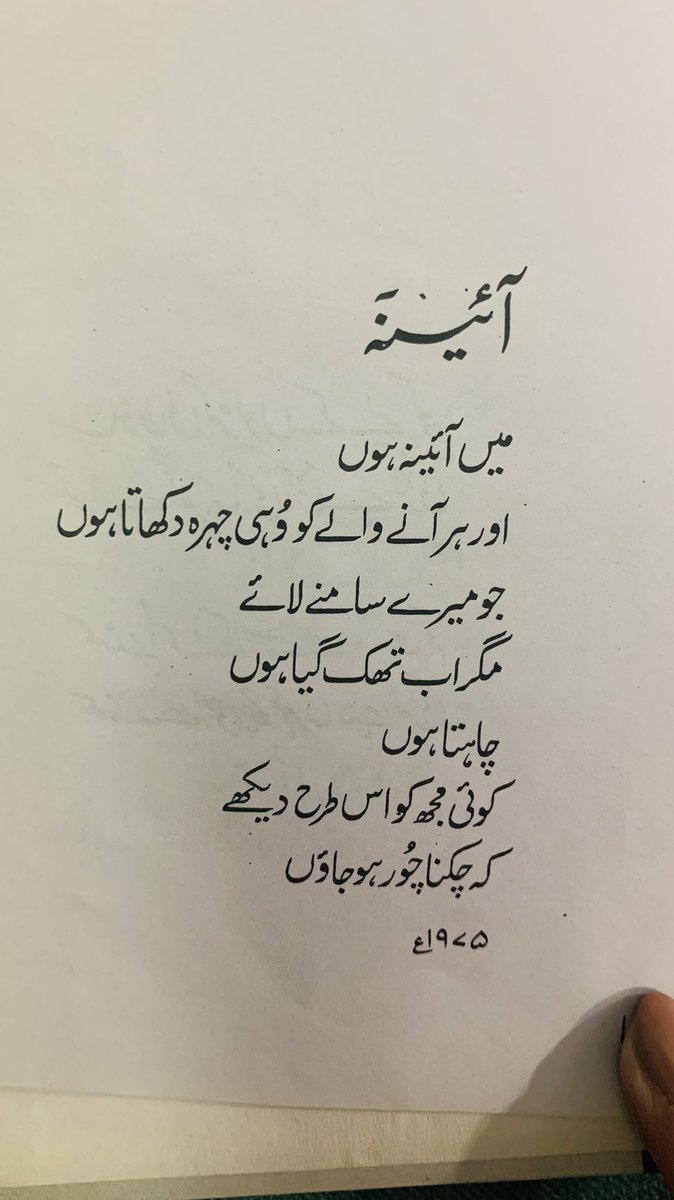 آئینہ
میں آئینہ ہوں
اور ہر آنے والے کو وُہی چہرہ دکھاتا ہوں
جو میرے سامنے لائے
مگر اب تھک گیا ہوں
چاہتا ہوں
کوئی مجھ کو اس طرح دیکھے
کہ چکنا چُور ہو جاؤں
۱۹۷۵ء